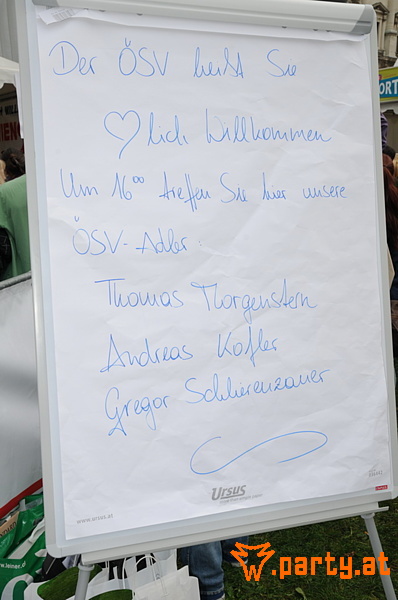 Der ÖSV heißt Sie
♡lich Willkommen
Um 16⁰⁰ treffen Sie hier unsere
ÖSV-Adler:
Thomas Morgenstern
Andreas Kofler
Gregor Schlierenzauer
Ursus
www.ursus.at
www.leiner.
ORT
w.party.at